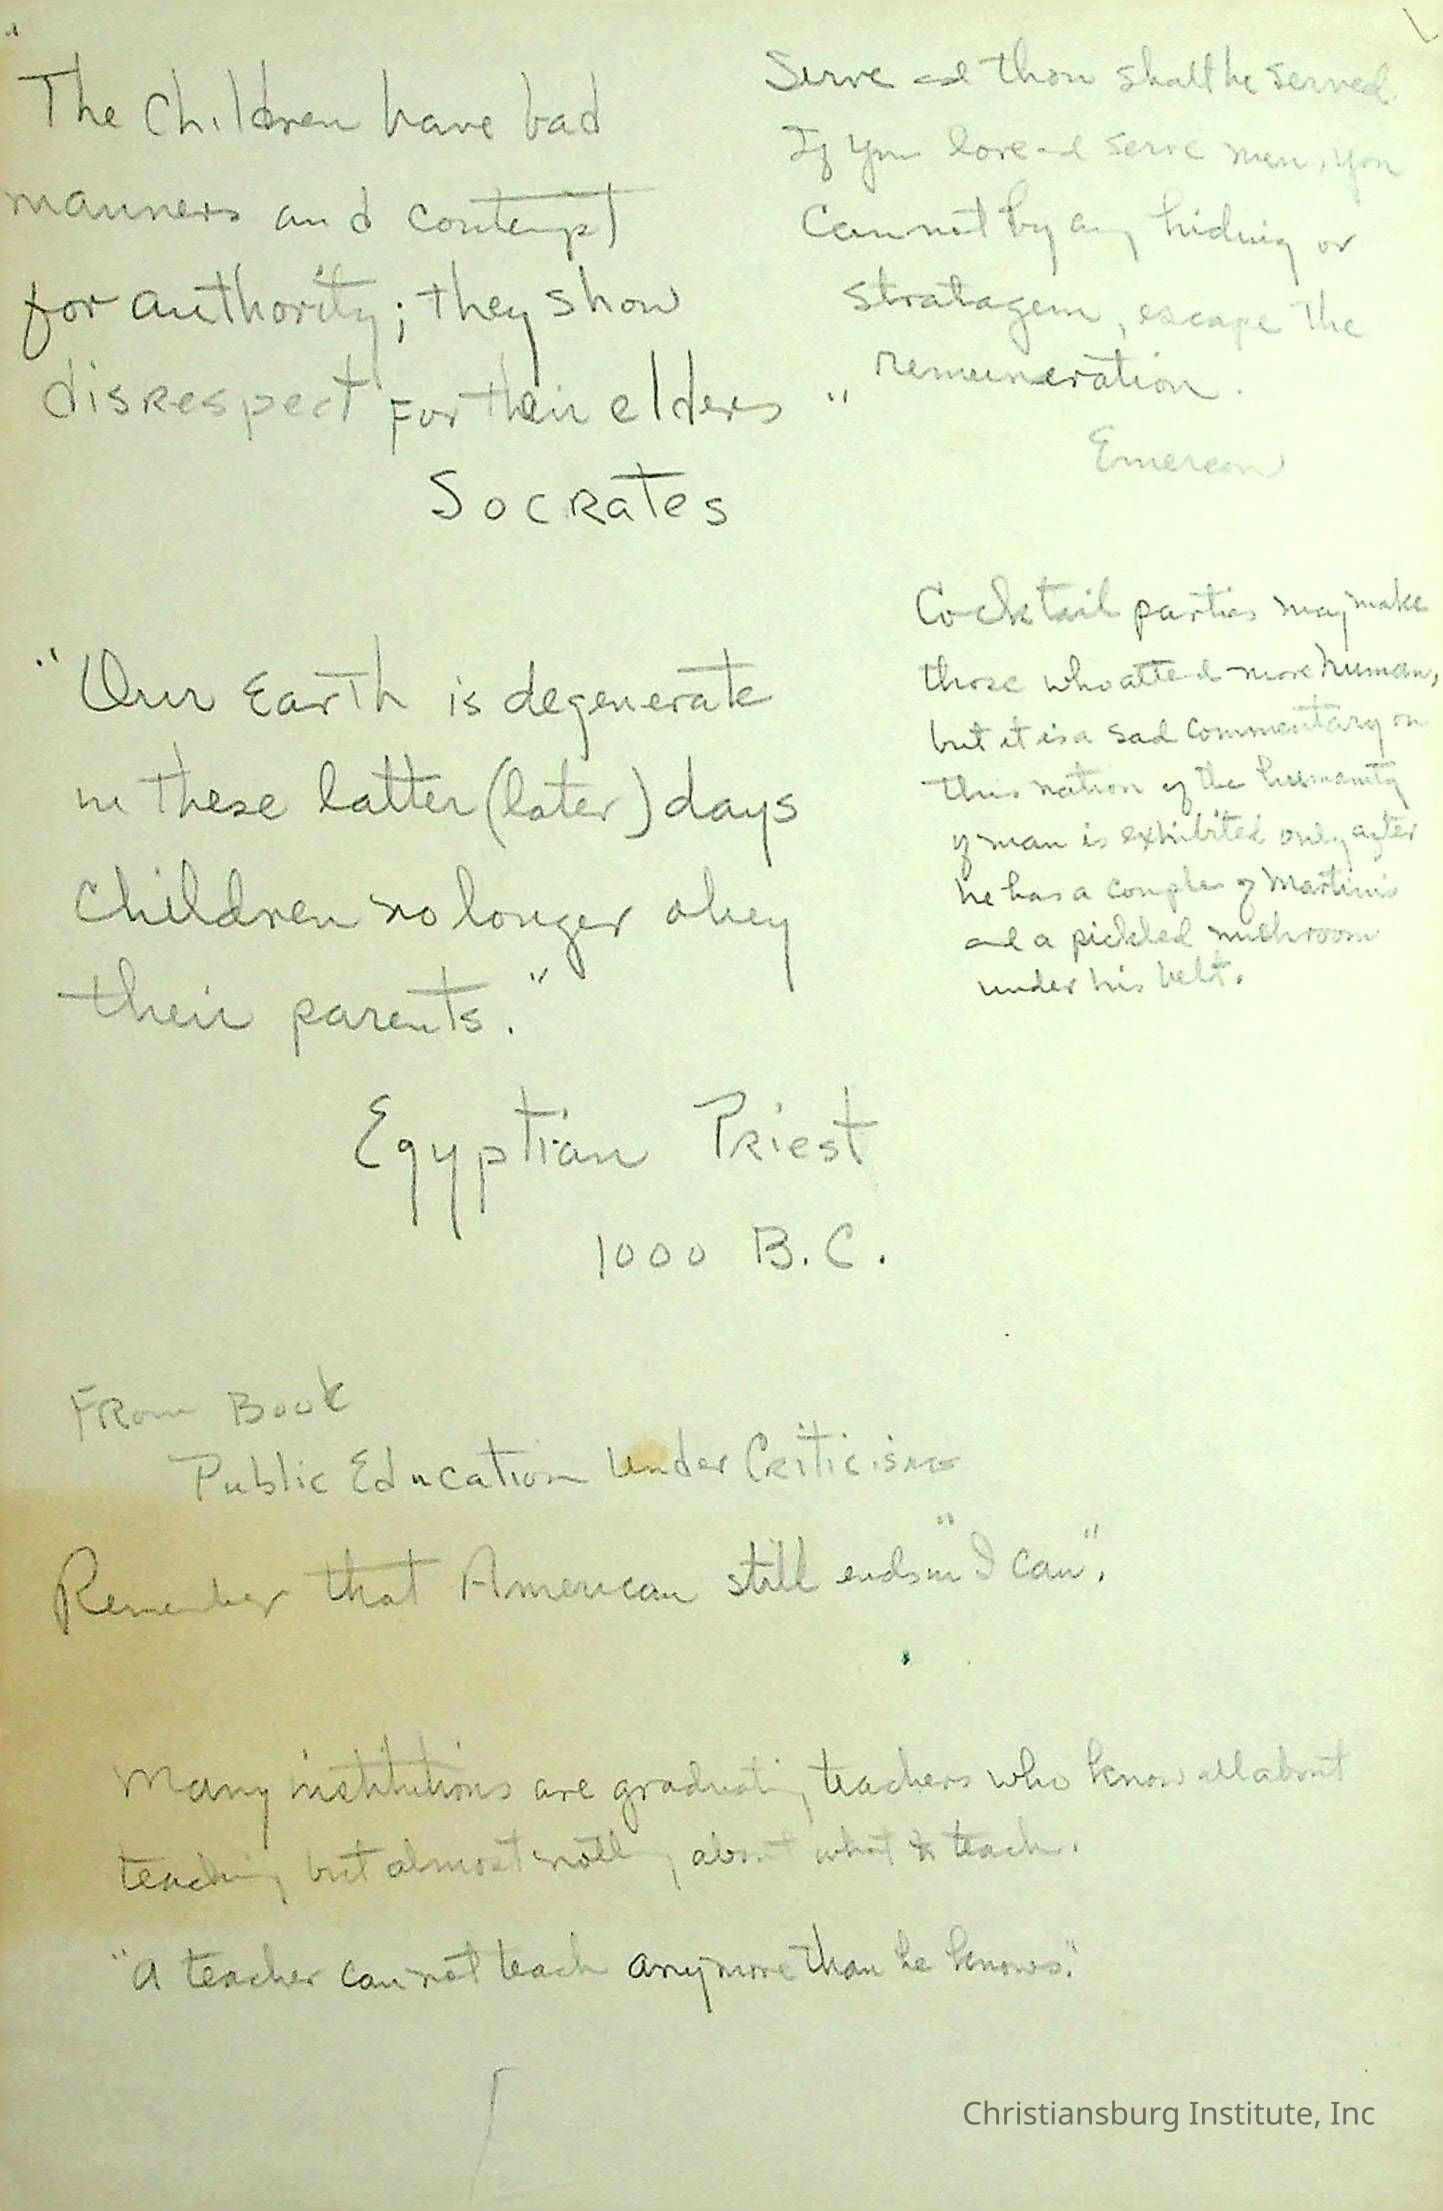 "The Children have bad
manners and contempt
for authority; they show
disrespect for their elders"
Socrates
Serve and thou shalt be served.
If you love and serve men, you
cannot by any hiding or
stratagem, escape the
remuneration.
Emerson
Cocktail parties may make
those who attend more human,
but it is a sad commentary on
this nation if the humanity
of man is exhibited only after
he has a couple of Martinis
and a pickled mushroom
under his belt.
"Our Earth is degenerate
in these latter (later) days
Children no longer obey
their parents."
Egyptian Priest
1000 B.C.
From Book
Public Education Under Criticism
Remember that American still ends in "I can".
Many institutions are graduating teachers who know all about
teaching but almost nothing about what to teach.
"A teacher can not teach anymore than he knows."
Christiansburg Institute, Inc